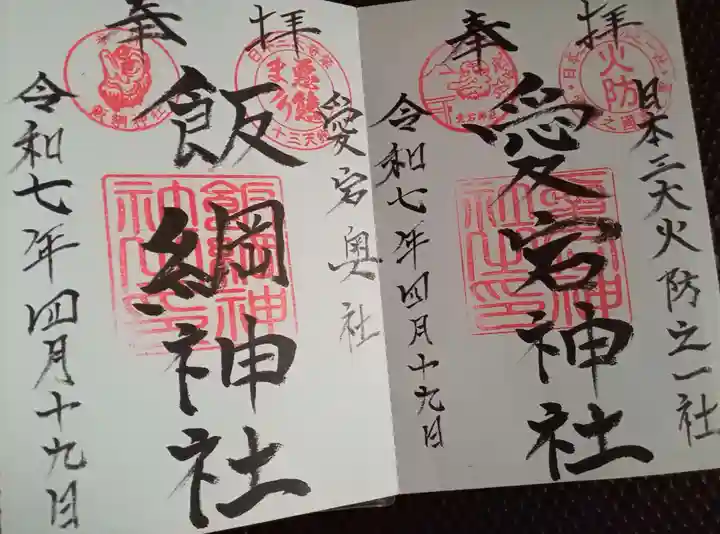 奉拝
日本三大火防之一社
火防
愛宕神社
令和七年四月十九日
奉拝
愛宕奥社
飯綱神社
飯綱神社
令和七年四月十九日